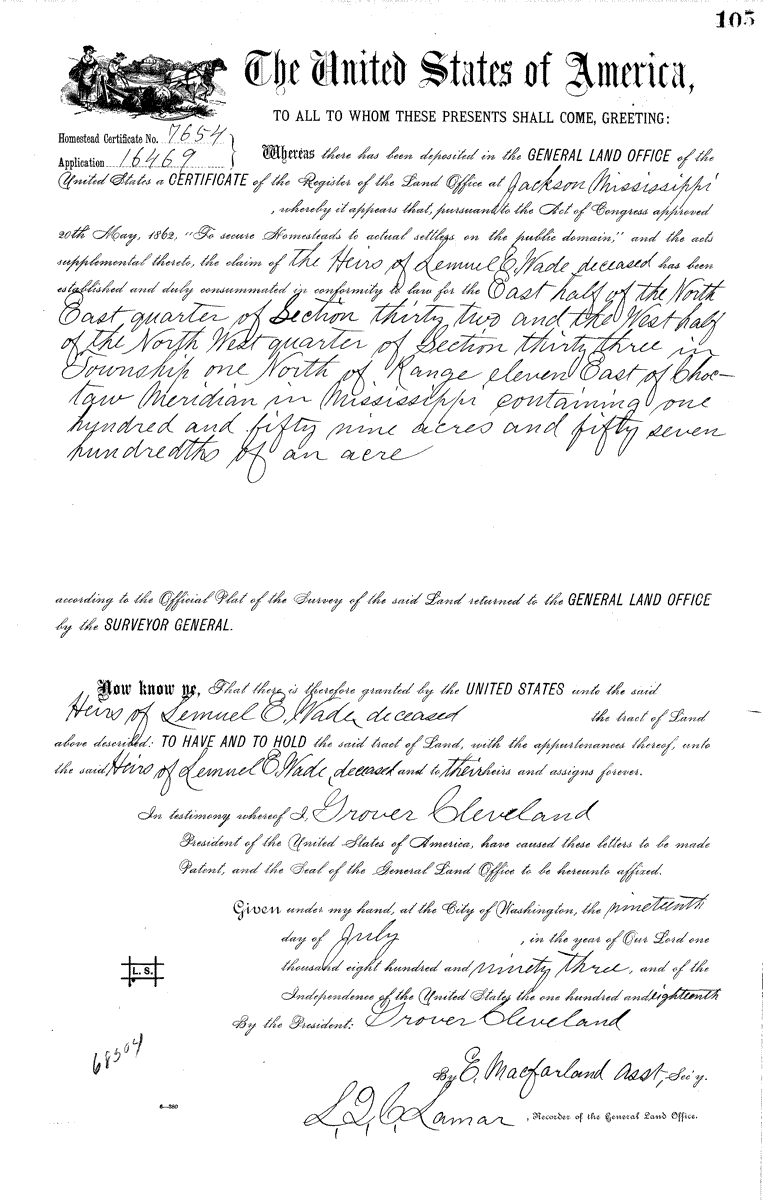 105
The United States of America,
TO ALL TO WHOM THESE PRESENTS SHALL COME, GREETING:
Homestead Certificate No. 7654
Application 16469
Whereas there has been deposited in the GENERAL LAND OFFICE of the
United States a CERTIFICATE of the Register of the Land Office at Jackson Mississippi
, whereby it appears that, pursuant to the Act of Congress approved
20th May, 1862, "To secure Homesteads to actual settlers on the public domain," and the acts
supplemental thereto, the claim of the Heirs of Lemuel E. Wade deceased has been
established and duly consummated in conformity to law for the East half of the North
East quarter of Section thirty two and the West half
of the North West quarter of Section thirty three in
Township one North of Range eleven East of Choc-
taw Meridian in Mississippi containing one
hundred and fifty nine acres and fifty seven
hundredths of an acre
according to the Official Plat of the Survey of the said Land returned to the GENERAL LAND OFFICE
by the SURVEYOR GENERAL.
Now know ye, That there is therefore granted by the UNITED STATES unto the said
Heirs of Lemuel E. Wade, deceased the tract of Land
above described: TO HAVE AND TO HOLD the said tract of Land, with the appurtenances thereof, unto
the said Heirs of Lemuel E. Wade, deceased and to their heirs and assigns forever.
In testimony whereof I, Grover Cleveland
President of the United States of America, have caused these letters to be made
Patent, and the Seal of the General Land Office to be hereunto affixed.
Given under my hand, at the City of Washington, the nineteenth
day of July , in the year of Our Lord one
thousand eight hundred and ninety three, and of the
Independence of the United States the one hundred and eighteenth
L. S.
By the President: Grover Cleveland
68504
By E. Macfarland Asst, Sec'y.
6—380
L, Q, C, Lamar , Recorder of the General Land Office.